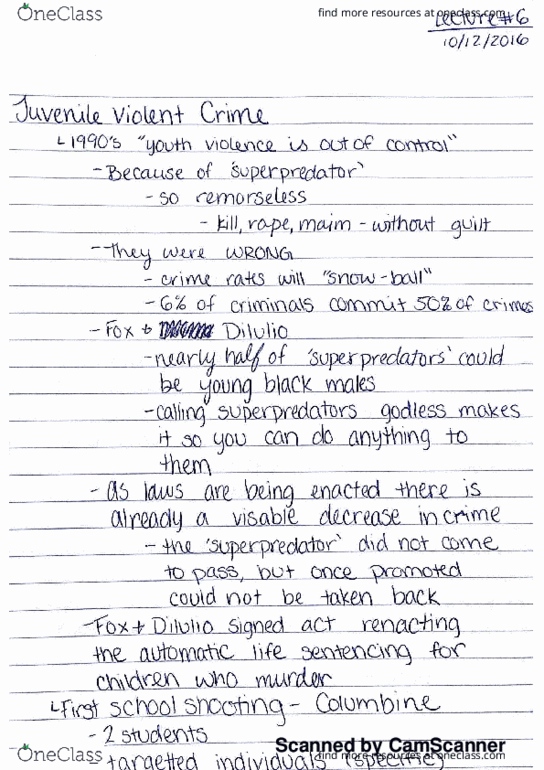 OneClass
find more resources at oneclass.com
Lecture #6
10/12/2016
Juvenile Violent Crime
↳ 1990's "youth violence is out of control"
- Because of 'superpredator'
- so remorseless
- kill, rape, maim - without guilt
- They were WRONG
- crime rates will "snow-ball"
- 6% of criminals commit 50% of crimes
- Fox + DiIulio
- nearly half of 'superpredators' could
be young black males
- calling superpredators godless makes
it so you can do anything to
them
- as laws are being enacted there is
already a visable decrease in crime
- the 'superpredator' did not come
to pass, but once promoted
could not be taken back
- Fox + DiIulio signed act renacting
the automatic life sentencing for
children who murder
↳ First school shooting - Columbine
- 2 students
Scanned by CamScanner
OneClass
find more resources at oneclass.com
targetted individuals (specific